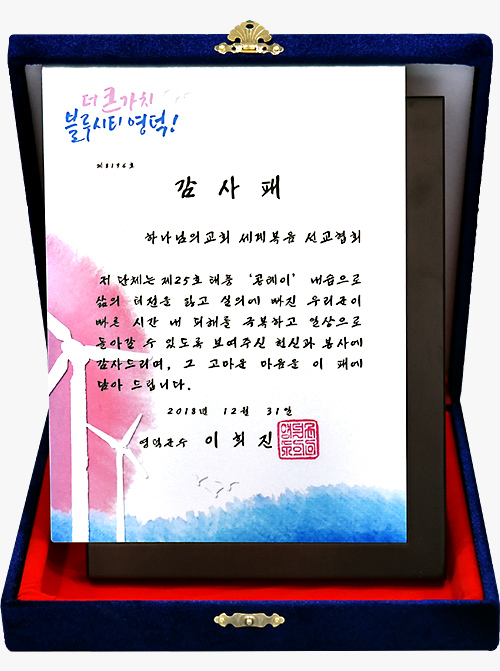 더 큰 가치
블루시티 영덕!
제8196호
감사패
하나님의교회 세계복음 선교협회
귀 단체는 제25호 태풍 '콩레이' 내습으로
삶의 터전을 잃고 실의에 빠진 우리군이
빠른 시간 내 피해를 극복하고 일상으로
돌아갈 수 있도록 보여주신 헌신과 봉사에
감사드리며, 그 고마운 마음을 이 패에
담아 드립니다.
2018년 12월 31일
영덕군수 이희진